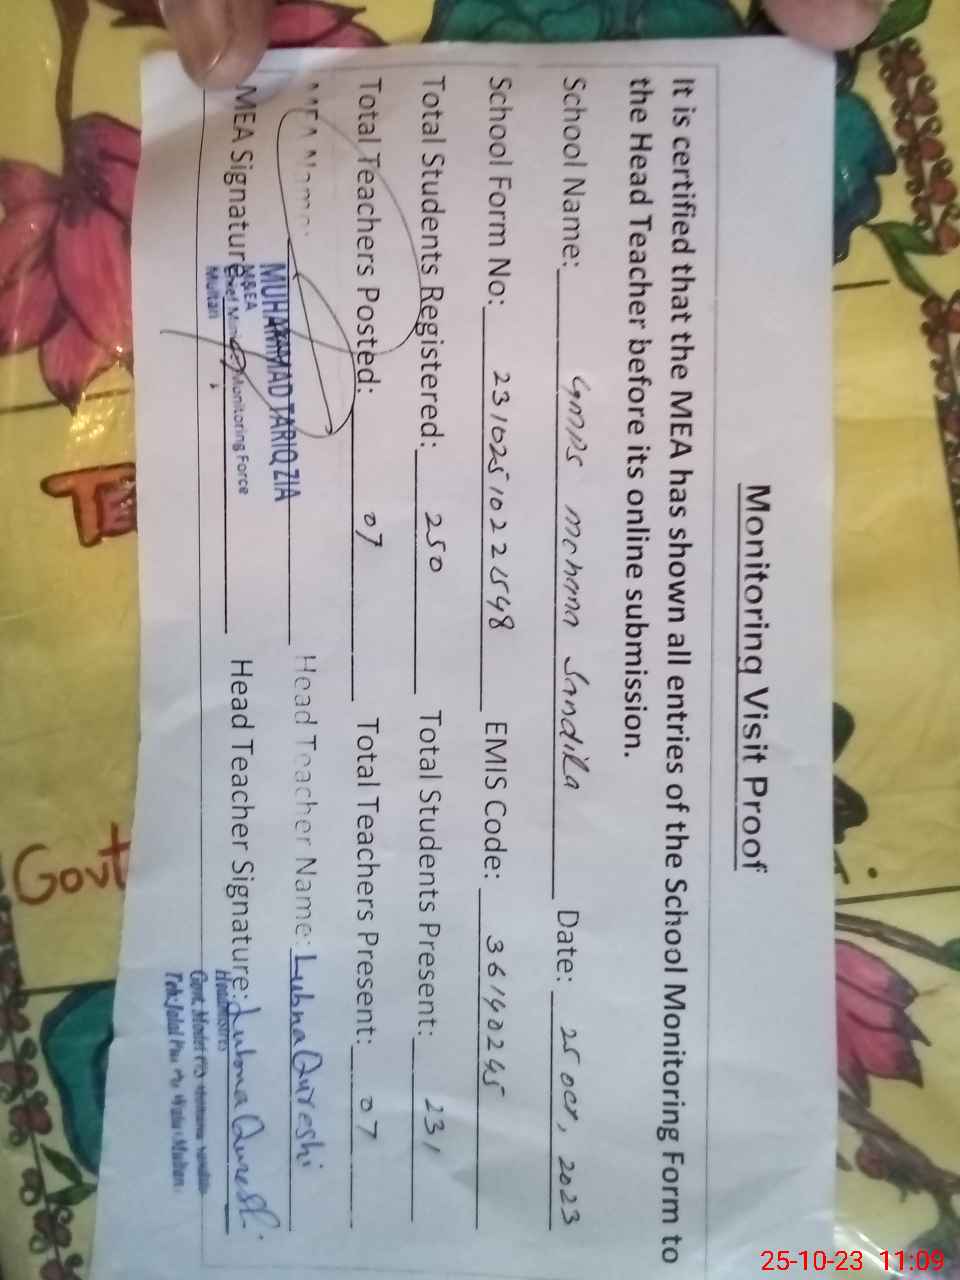 Monitoring Visit Proof
It is certified that the MEA has shown all entries of the School Monitoring Form to
the Head Teacher before its online submission.
School Name: GMPS Mohana Sandila Date: 25 Oct, 2023
School Form No: EMIS Code: 36140245
Total Students Registered: 250 Total Students Present: 231
Total Teachers Posted: 07 Total Teachers Present: 07
MEA Name: MUHAMMAD TARIQ ZIA Head Teacher Name: Lubna Qureshi
M&EA
Chief Minister Monitoring Force
Multan
MEA Signature Head Teacher Signature: Lubna Qureshi
Headmistress
Govt. Model
Multan
Govt
25-10-23 11:09